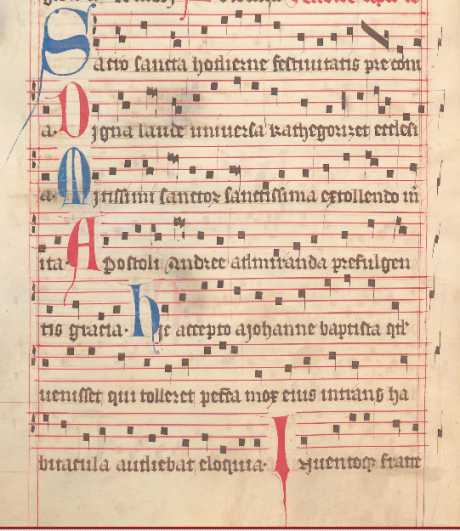 Satio sancta hodierne festiuitatis preconi
a. Digna laude uniuersa kathegorizet ecclesi
a. Mitissimi sanctoꝝ sanctissima extollendo m̄
ita Apostoli Andree admiranda prefulgen
tis gracia. hic accepto a iohanne baptista qd̄
uenisset qui tolleret pctā mox eius intrans ha
bitacula audiebat eloquia. Inuentoqꝫ fratre